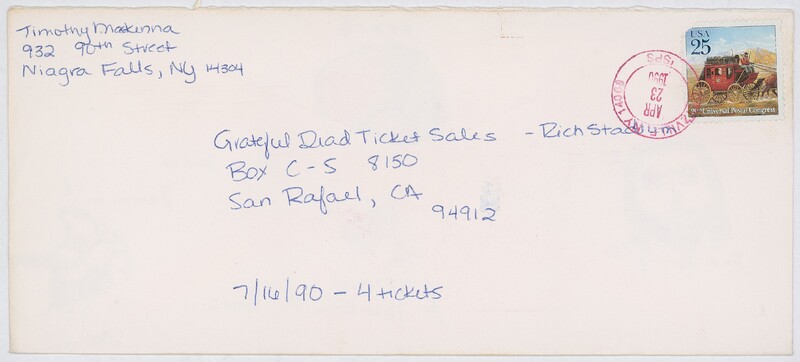 Timothy McKenna
932 90th Street
Niagra Falls, NY 14304
USA
25
20th Universal Postal Congress
14068
APR
23
1990
USPS
Grateful Dead Ticket Sales - Rich Stadium
Box C-S 8150
San Rafael, CA
94912
7/16/90 - 4 tickets